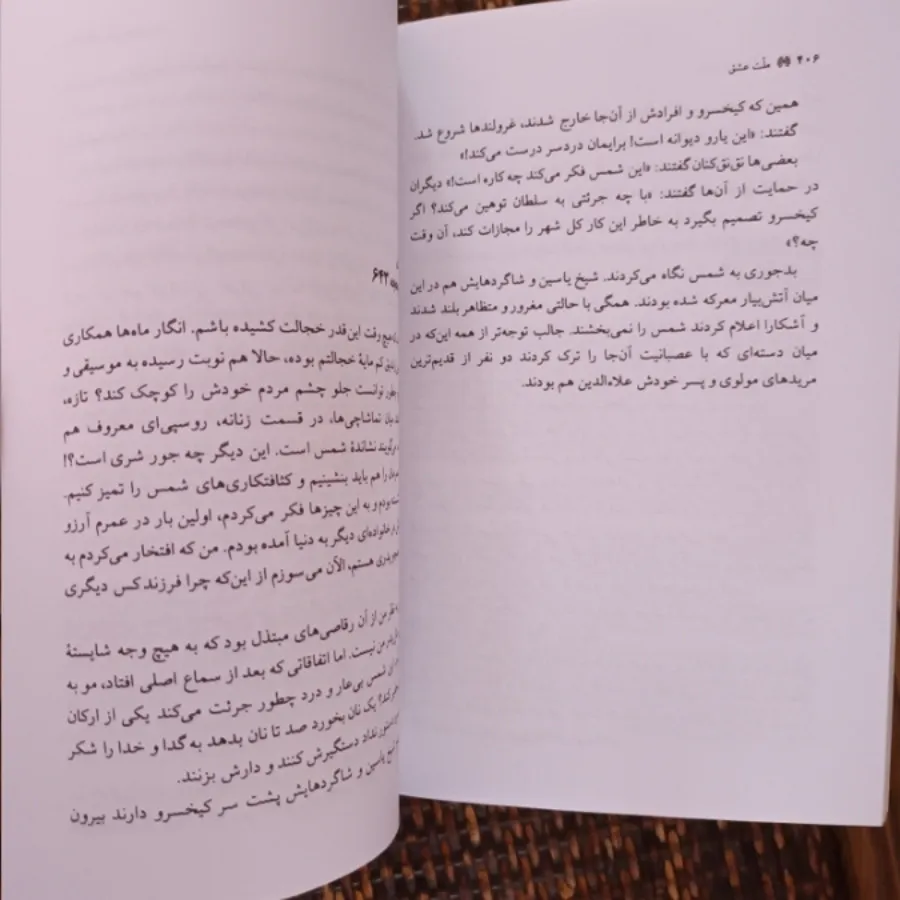 ۴۰۶ ملّت عشق
همین که کیخسرو و افرادش از آن‌جا خارج شدند، غرولندها شروع شد.
گفتند: «این یارو دیوانه است! برایمان دردسر درست می‌کند!»
بعضی‌ها نق‌نق‌کنان گفتند: «این شمس فکر می‌کند چه کاره است!» دیگران
در حمایت از آن‌ها گفتند: «با چه جرئتی به سلطان توهین می‌کند؟ اگر
کیخسرو تصمیم بگیرد به خاطر این کار کل شهر را مجازات کند، آن وقت
چه؟»
بدجوری به شمس نگاه می‌کردند. شیخ یاسین و شاگردهایش هم در این
میان آتش‌بیار معرکه شده بودند. همگی با حالتی مغرور و متظاهر بلند شدند
و آشکارا اعلام کردند شمس را نمی‌بخشند. جالب توجه‌تر از همه این‌که در
میان دسته‌ای که با عصبانیت آن‌جا را ترک کردند دو نفر از قدیم‌ترین
مریدهای مولوی و پسر خودش علاءالدین هم بودند.
۶۴۲
هیچ رفت این‌قدر خجالت کشیده باشم. انگار ماه‌ها همکاری
کم مایهٔ خجالتم بوده، حالا هم نوبت رسیده به موسیقی و
توانست جلو چشم مردم خودش را کوچک کند؟ تازه،
میان تماشاچی‌ها، در قسمت زنانه، روسپی‌ای معروف هم
می‌گویند نشاندهٔ شمس است. این دیگر چه جور شری است؟!
را هم باید بنشینیم و کثافتکاری‌های شمس را تمیز کنیم.
بودم و به این چیزها فکر می‌کردم، اولین بار در عمرم آرزو
در خانواده‌ای دیگر به دنیا آمده بودم. من که افتخار می‌کردم به
پدری هستم، الآن می‌سوزم از این‌که چرا فرزند کس دیگری
نظر من از آن رقاصی‌های مبتذل بود که به هیچ وجه شایستهٔ
من نیست. اما اتفاقاتی که بعد از سماع اصلی افتاد، مو به
شمس بی‌عار و درد چطور جرئت می‌کند یکی از ارکان
یک نان بخورد صد تا نان بدهد به گدا و خدا را شکر
نداد دستگیرش کنند و دارش بزنند.
یاسین و شاگردهایش پشت سر کیخسرو دارند بیرون